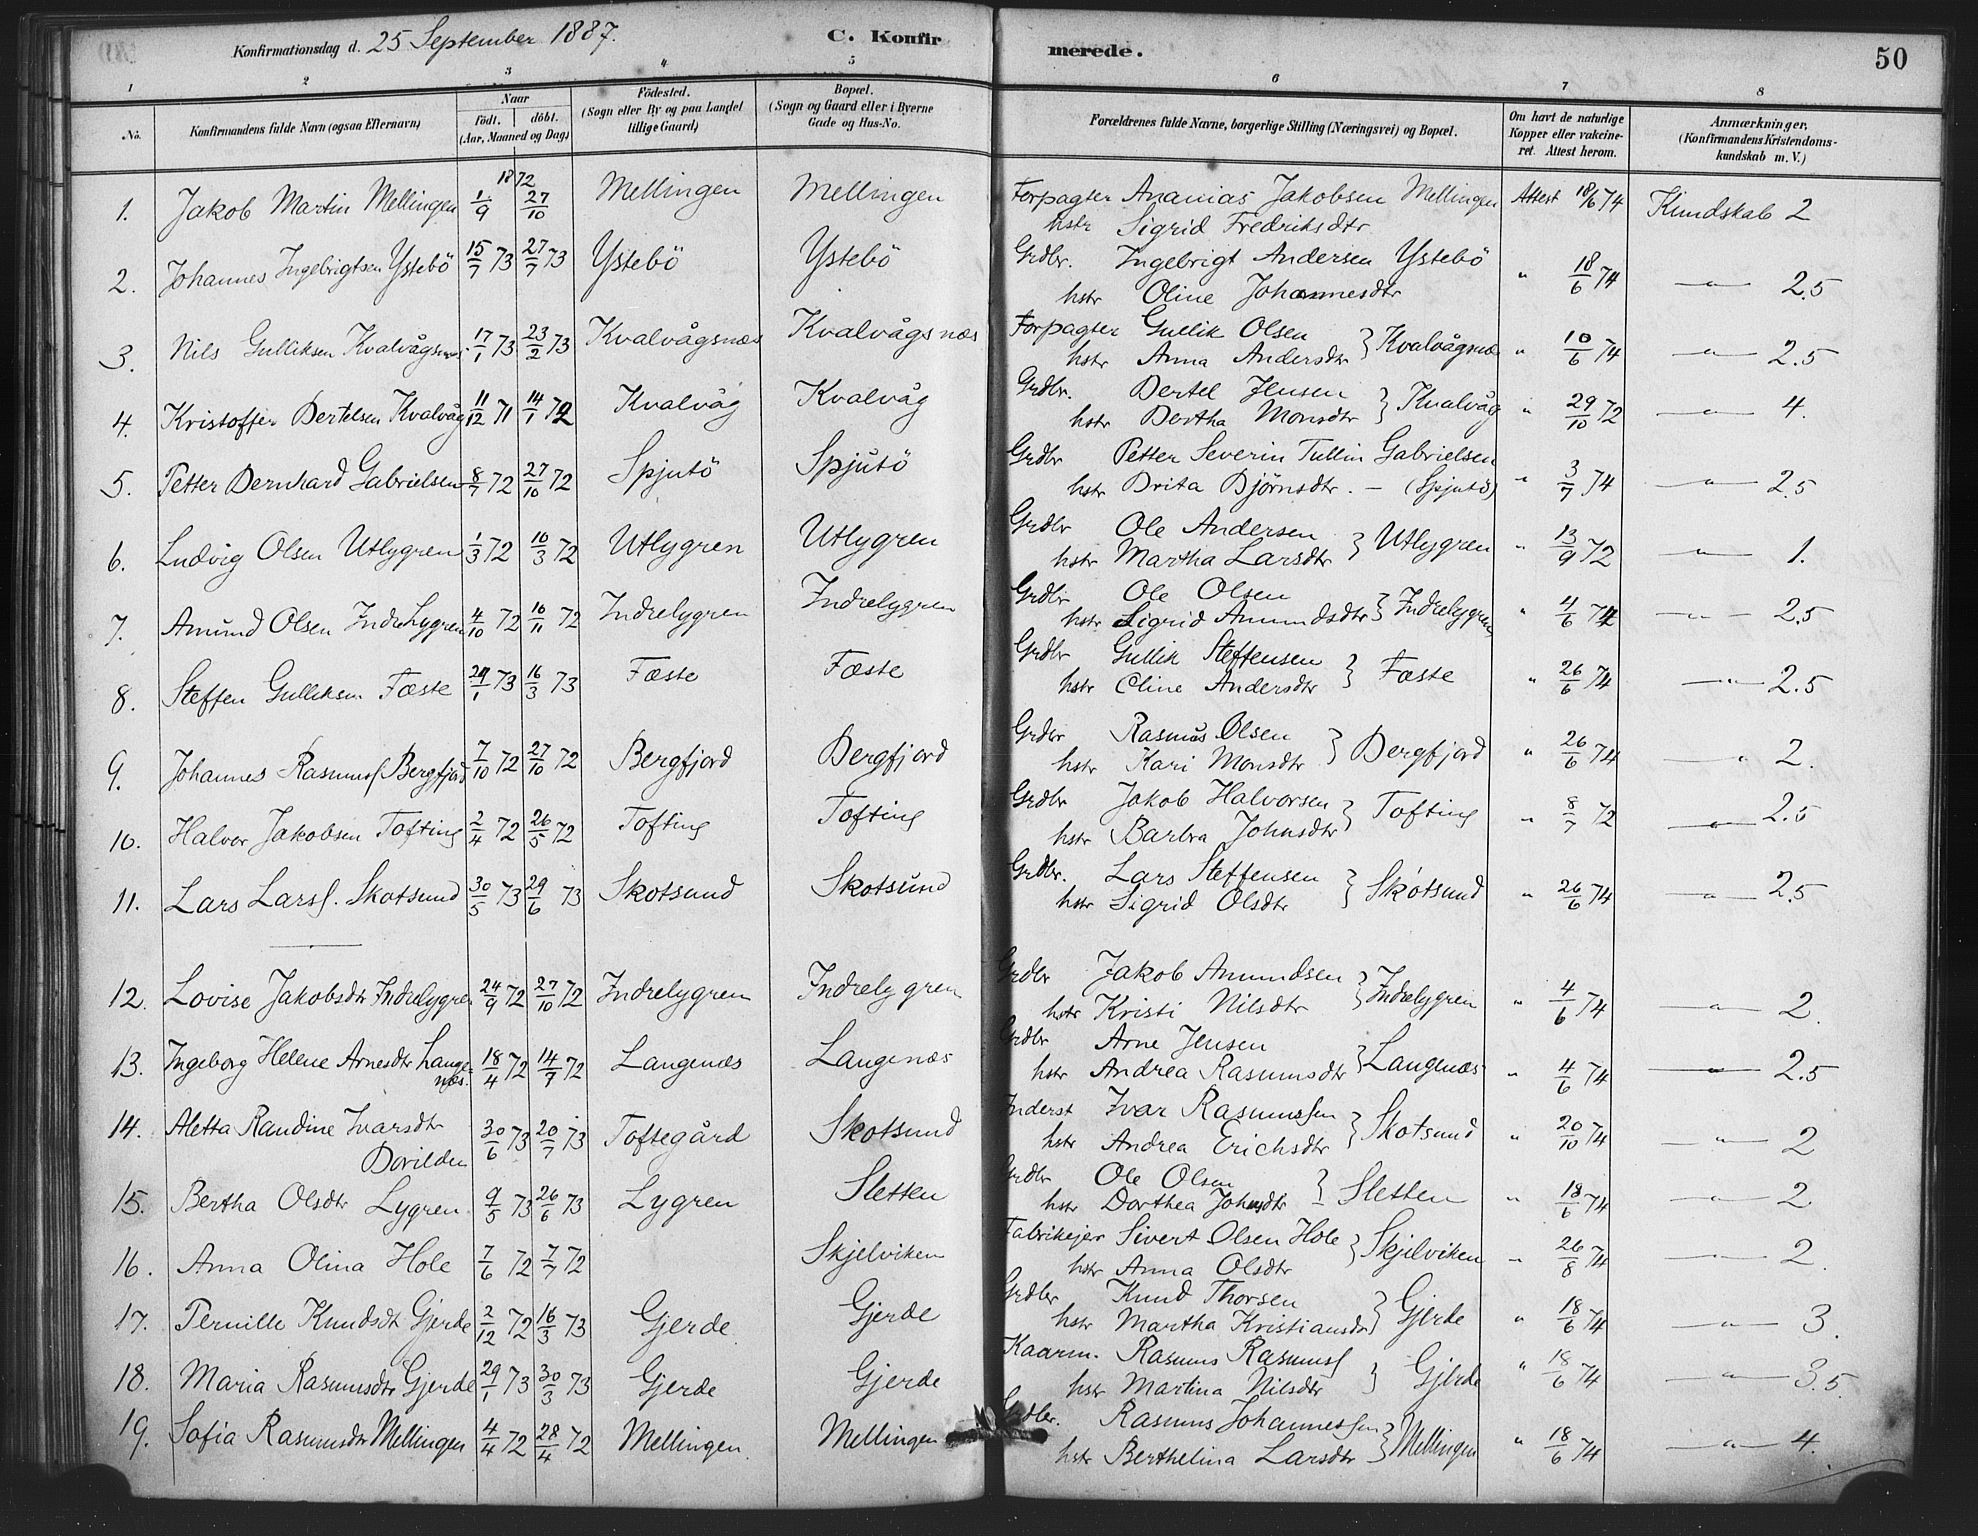 Konfirmationsdag d. 25 September 1887. C. Konfirmerede. 50
1 2 3 4 5 6 7 8
No. Konfirmandens fulde Navn (ogsaa Efternavn) Naar födt. döbt. (Aar, Maaned og Dag) Födested. (Sogn eller By og paa Landet tillige Gaard) Bopæl. (Sogn og Gaard eller i Byerne Gade og Hus-No. Forældrenes fulde Navne, borgerlige Stilling (Næringsvei) og Bopæl. Om havt de naturlige Kopper eller vakcineret. Attest herom. Anmærkninger. (Konfirmandens Kristendomskundskab m. V.)
1872
1. Jakob Martin Mellingen 1/9 27/10 Mellingen Mellingen Forpagter Ananias Jakobsen Mellingen Attest 18/6 74 Kundskab 2
hstr Sigrid Fredriksdtr
2. Johannes Ingebrigtsen Ystebö 15/7 73 27/7 73 Ystebö Ystebö Grdbr. Ingebrigt Andersen Ystebö " 18/6 74 — " — 2.5
hstr Oline Johannesdtr
3. Nils Gulliksen Kvalvågsnæs 17/1 73 23/2 73 Kvalvågsnæs Kvalvågsnæs Forpagter Gullik Olsen } Kvalvågsnæs " 10/6 74 — " — 2.5
hstr Anna Andersdtr
4. Kristoffer Bertelsen Kvalvåg 11/12 71 14/1 72 Kvalvåg Kvalvåg Grdbr. Bertel Jensen } Kvalvåg " 29/10 72 — " — 4.
hstr Bertha Monsdtr
5. Petter Bernhard Gabrielsen 8/7 72 27/10 72 Spjutö Spjutö Grdbr Petter Severin Tullin Gabrielsen " 3/7 74 — " — 2.5
hstr Brita Björnsdtr. — (Spjutö)
6. Ludvig Olsen Utlygren 1/3 72 10/3 72 Utlygren Utlygren Grdbr Ole Andersen } Utlygren " 13/9 72 — " — 1.
hstr Martha Larsdtr
7. Amund Olsen Indrelygren 4/10 72 10/11 72 Indrelygren Indrelygren Grdbr Ole Olsen } Indrelygren " 4/6 74 — " — 2.5
hstr Sigrid Amundsdtr
8. Steffen Gulliksen Fæste 29/1 73 16/3 73 Fæste Fæste Grdbr Gullik Steffensen } Fæste " 26/6 74 — " — 2.5
hstr Oline Andersdtr
9. Johannes Rasmuss Bergfjord 7/10 72 27/10 72 Bergfjord Bergfjord Grdbr Rasmus Olsen } Bergfjord " 26/6 74 — " — 2.
hstr Kari Monsdtr
10. Halvor Jakobsen Tofting 2/4 72 26/5 72 Tofting Tofting Grdbr Jakob Halvorsen } Tofting " 8/7 72 — " — 2.5
hstr Barbra Johnsdtr
11. Lars Larss. Skotsund 30/5 73 29/6 73 Skotsund Skotsund Grdbr. Lars Steffensen } Skotsund " 26/6 74 — " — 2.5
hstr Sigrid Olsdtr
12. Lovise Jakobsdtr Indrelygren 24/9 72 27/10 72 Indrelygren Indrelygren Grdbr Jakob Amundsen } Indrelygren " 4/6 74 — " — 2.
hstr Kristi Nilsdtr
13. Ingeborg Helene Arnesdtr Langenæs. 18/4 72 14/7 72 Langenæs Langenæs Grdbr Arne Jensen } Langenæs " 4/6 74 — " — 2.5
hstr Andrea Rasmusdtr
14. Aletta Randine Ivarsdtr 30/6 73 20/7 73 Toftegård Skotsund Inderst Ivar Rasmussen } Skotsund " 20/10 74 — " — 2
hstr Andrea Erichsdtr
15. Bertha Olsdtr Lygren 9/5 73 26/6 73 Lygren Sletten Grdbr Ole Olsen } Sletten " 18/6 74 — " — 2
hstr Dorthea Johnsdtr
16. Anna Olina Hole 7/6 72 7/7 72 Skjelviken Fabrikejer Sivert Olsen Hole } Skjelviken " 26/8 74 — " — 2.
hstr Anna Olsdtr
17. Pernille Knudsdt Gjerde 2/12 72 16/3 73 Gjerde Gjerde Grdbr Knud Thorsen } Gjerde " 18/6 74 — " — 3.
hstr Martha Kristiansdtr
18. Maria Rasmusdtr Gjerde 29/1 73 30/3 73 Gjerde Gjerde Kaarm. Rasmus Rasmuss } Gjerde " 18/6 74 — " — 3.5.
hstr Martina Nilsdtr
19. Sofia Rasmusdtr Mellingen 4/4 72 28/4 72 Mellingen Mellingen Grdbr. Rasmus Johannessen } Mellingen " 18/6 74 — " — 4.
hstr Berthelina Larsdtr